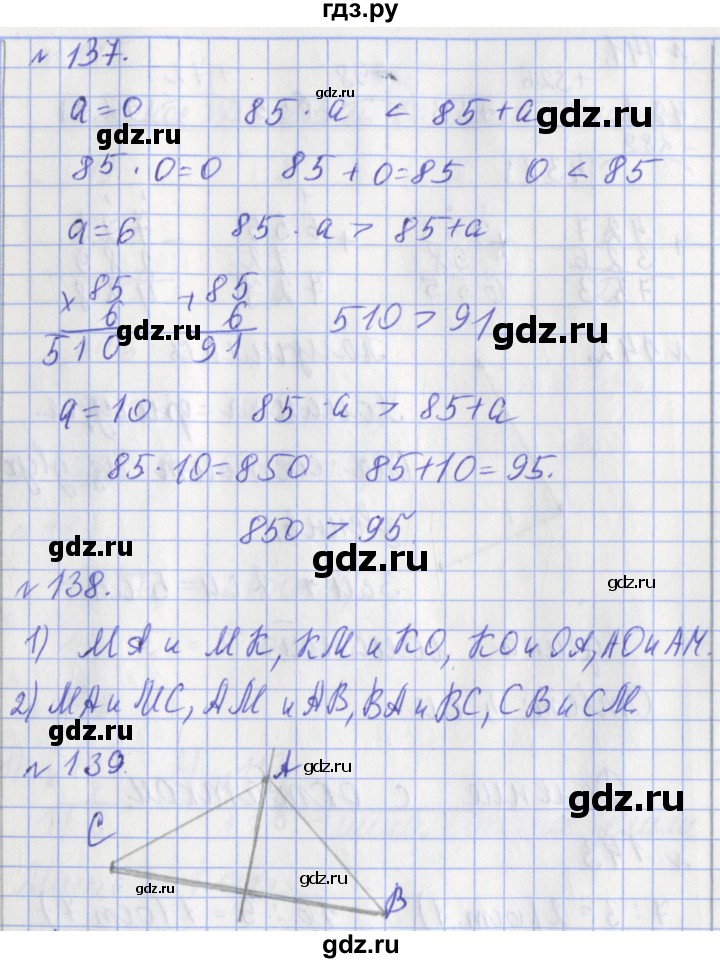 гдз.ру
№ 137.
a=0 85 · a < 85+a
gdz.ru
gdz.ru
gdz.ru
85 · 0=0 85+0=85 0 < 85
a=6 85 · a > 85+a
× 85 + 85
6 6 510 > 91
510 91
gdz.ru
gdz.ru
a=10 85 · a > 85+a
85 · 10=850 85+10=95.
850 > 95.
gdz.ru
gdz.ru
gdz.ru
№ 138.
1) МА и МК, КМ и КО, КО и ОА, АО и АМ.
2) МА и МС, АМ и АВ, ВА и ВС, СВ и СМ.
gdz.ru
№ 139.
A
gdz.ru
gdz.ru
C
gdz.ru
gdz.ru
B
gdz.ru